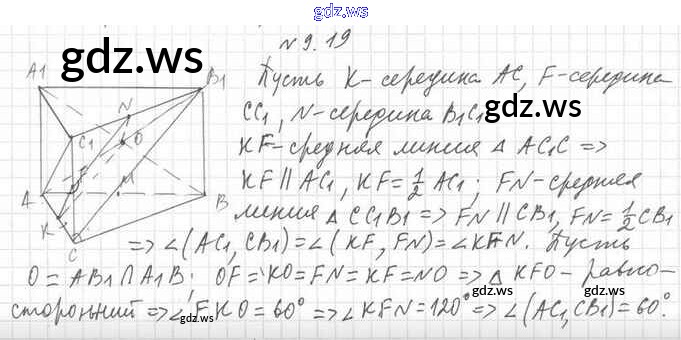 gdz.ws
gdz.ws
№9.19
A1 B1 N C1 O F A M B K C
Пусть K - середина AC, F - середина
CC1, N - середина B1C1 gdz.ws
KF - средняя линия Δ AC1C =>
KF || AC1, KF = 1/2 AC1; FN - средняя
линия Δ CC1B1 => FN || CB1, FN = 1/2 CB1
=> ∠(AC1, CB1) = ∠(KF, FN) = ∠KFN. Пусть
O = AB1 ∩ A1B; OF = KO = FN = KF = NO => Δ KFO - равно-
сторонний => ∠FKO = 60° => ∠KFN = 120° => ∠(AC1, CB1) = 60°.
gdz.ws gdz.ws